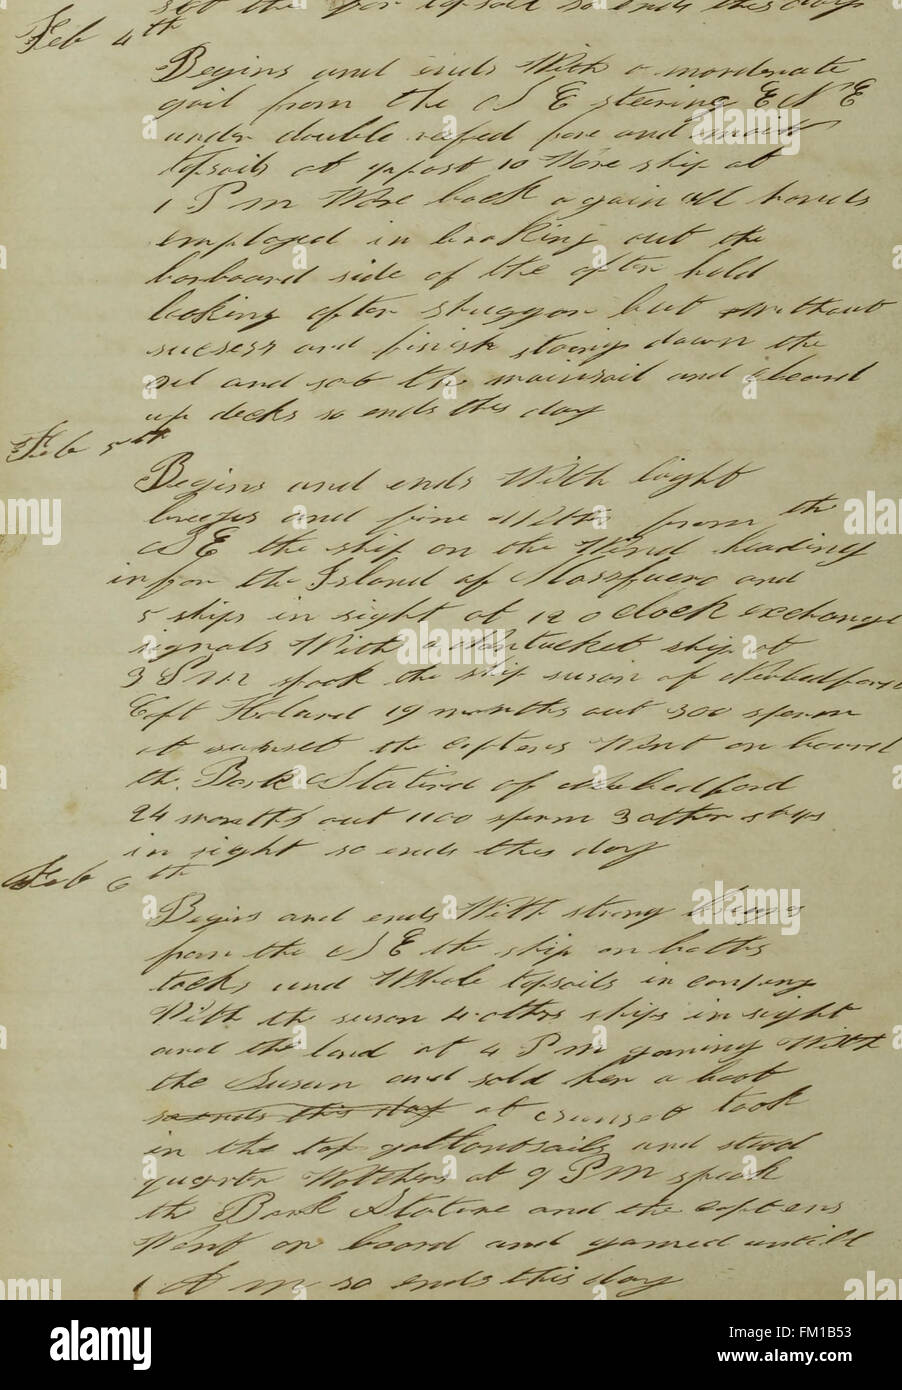 set the for topsail so ends this day
Feb 4th
Begins and ends With a mordorate
gail from the S E steering E N E
under double reefed fore and main
topsails at ½ past 10 Wore ship at
1 P m Wore back again all hands
employed in braking out the
larboard side of the after hold
looking after shuggon but Without
sucsess and finish stoing down the
oil and set the mainsail and cleard
up decks so ends this day
Feb 5th
Begins and ends With light
breezes and fine from th
S E the ship on the Wind heading
in for the Island of Massfuero and
5 ships in sight at 12 o clock exchange
signals With a Nantucket ship at
3 P M spook the ship susan of Nubedford
Capt Holand 19 months out 300 sperm
at sunset the captens Went on board
the Bark of Nubedford
24 months out 1100 sperm 3 other ships
in sight so ends this day
Feb 6th
Begins and ends With strong breezes
from the S E the ship on boths
tacks and Whole topsails in conpany
With the susan 4 others ships in sight
and the land at 4 P m gaming With
the Susan and sold her a boat
so ends this day at sunset took
in the top gallantsails and stood
quarter Watches at 9 P M speak
the Bark and the captens
Went on board and gamed untill
1 A m so ends this day
alamy
www.alamy.com
FM1B53